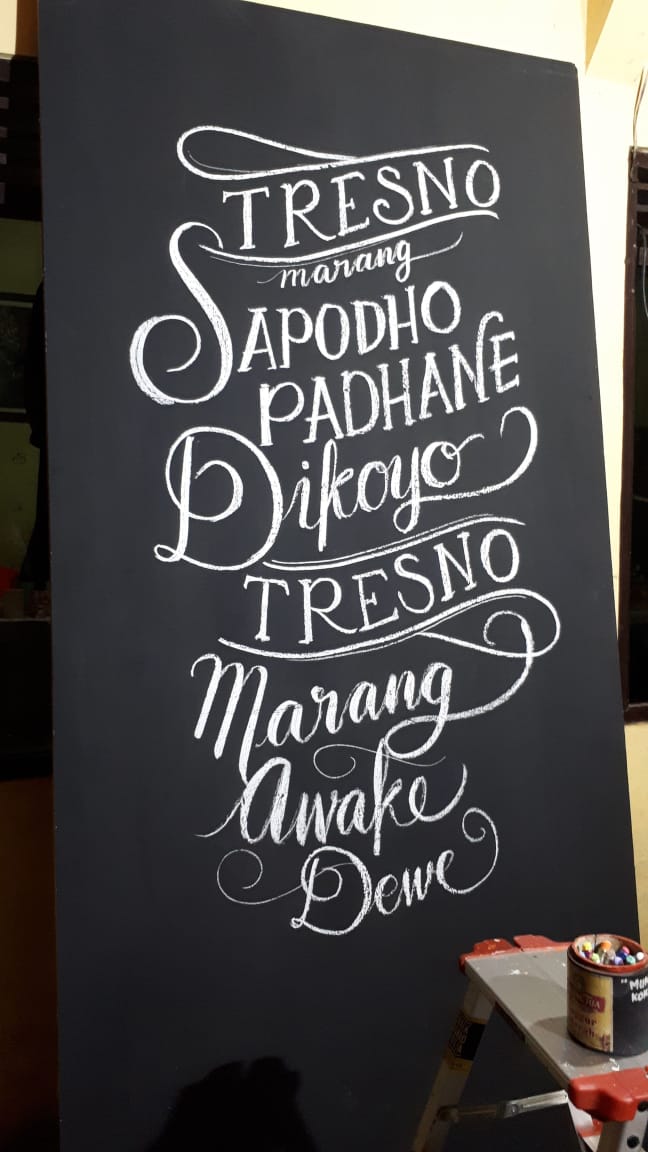 TRESNO
marang
SAPODHO
PADHANE
Dikoyo
TRESNO
Marang
Awake
Dewe